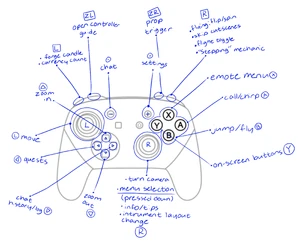 ZL
open controller
guide
ZR
prop
trigger
R
• flying flip/spin
• skip cutscenes
• flight toggle
• "stepping" mechanic
L
• forge candle
• currency count
chat
settings
zoom
in
• emote menu X
call/chirp A
• jump/fly B
on-screen buttons Y
L move
quests
X
Y
A
B
L
R
chat
history/log
zoom
out
• turn camera
• menu selection
(pressed down)
• info/tips
• instrument layout
change
R